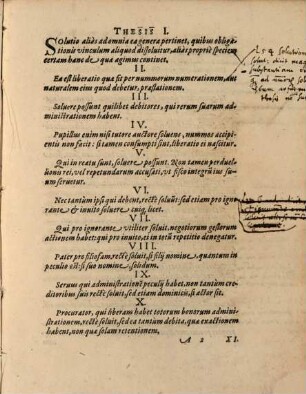 THESIS I.
Solutio aliàs ad omnia ea genera pertinet, quibus obliga
tionis vinculum aliquod dissoluitur, aliàs propriè speciem
certam hanc de qua agimus continet.
II.
Ea est liberatio qua fit per nummorum numerationem, aut
naturalem eius quod debetur, præstationem.
III.
Soluere possunt quilibet debitores, qui rerum suarum ad-
ministrationem habent.
IV.
Pupillus enim nisi tutore auctore soluens, nummos accipi-
entis non facit: si tamen consumpti sint, liberatio ei nascitur.
V.
Qui in reatu sunt, soluere possunt. Non tamen perduel-
lionis rei, vel repetundarum accusati, vt fisco integrū ius
suum seruetur.
VI.
Nec tantùm ipsi qui debent, rectè soluūt: sed etiam pro igno
rante & inuito soluere cuiq; licet.
VII.
Qui pro ignorante vtiliter soluit, negotiorum gestorum
actionem habet: qui pro inuito, ei in totū repetitio denegatur.
VIII.
Pater pro filiofam. rectè soluit, si filij nomine, quantum in
peculio est: si suo nomine, solidum.
IX.
Seruus qui administrationē peculij habet, non tantùm cre-
ditoribus suis rectè soluit, sed etiam dominicis, si actor sit.
X.
Procurator, qui liberam habet totorum bonorum admini-
strationem, rectè soluit, sed ea tantùm debita, qua exactionem
habent, non qua solam retentionem.
A 2 XI.